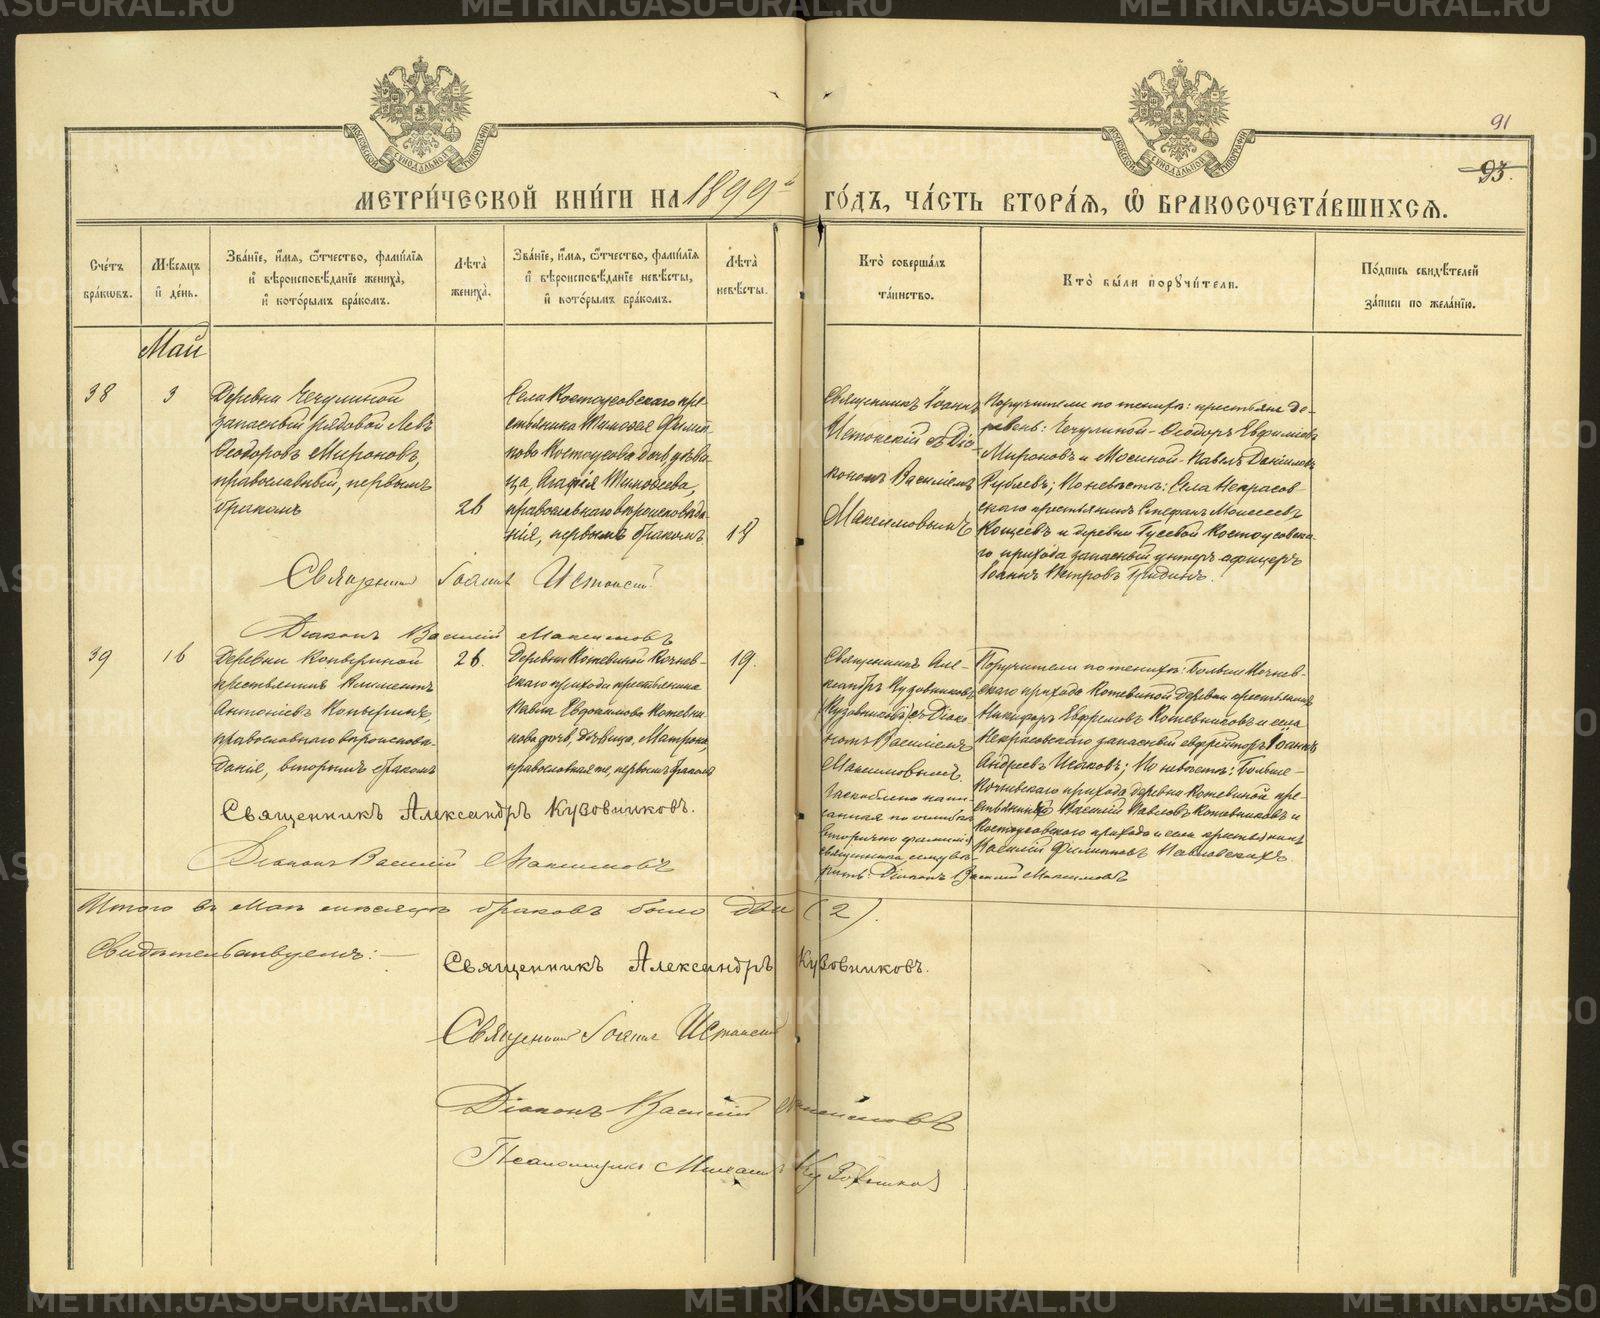 91
93.
МЕТРИ́ЧЕСКОЙ КНИ́ГИ НА 1899й ГО́ДЪ, ЧА́СТЬ ВТОРА́Я, Ѡ БРАКОСОЧЕТА́ВШИХСЯ.
Сче́тъ бра́кѡвъ.
Мѣ́сяцъ и҆ де́нь.
Зва́нїе, и҆́мя, ѻ҆́тчество, фами́лїя и҆ вѣроисповѣ́данїе жениха̀, и҆ кото́рымъ бра́комъ.
Лѣ́та жениха̀.
Зва́нїе, и҆́мя, ѻ҆́тчество, фами́лїя и҆ вѣроисповѣ́данїе невѣ́сты, и҆ кото́рымъ бра́комъ.
Лѣ́та невѣ́сты.
Кто̀ соверша́лъ та́инство.
Кто̀ бы́ли порꙋчи́тели.
По́дпись свидѣ́телей за́писи по жела́нїю.
Май
38
3
Деревни Чечулиной
запасный рядовой Левъ
Ѳеодоровъ Мироновъ,
православный, первымъ
бракомъ
26
Села Костоусовскаго кре-
стьянина Тимоѳея Филип-
пова Костоусова дочь, дѣви-
ца, Агафія Тимоѳеева,
православнаго вѣроисповѣда-
нія, первымъ бракомъ.
18
Священникъ Іоаннъ
Истокскій съ Діа-
кономъ Василіемъ
Максимовымъ
Поручители по женихѣ: крестьяне де-
ревень: Чечулиной - Ѳеодоръ Евфиміевъ
Мироновъ и Мосиной - Павелъ Даніиловъ
Рублевъ; По невѣстѣ: Села Некрасов-
скаго крестьянинъ Стефанъ Моисеевъ
Кощеевъ и деревни Гусевой Костоусовска-
го прихода запасный унтеръ офицеръ
Іоаннъ Петровъ Гридинъ.
Священникъ Іоаннъ Истокскій
Діаконъ Василій Максимовъ
39
16
Деревни Копыриной
крестьянинъ Климентъ
Антоніевъ Копыринъ,
православнаго вѣроисповѣ-
данія, вторымъ бракомъ
26.
Деревни Кожевиной Кочнев-
скаго прихода крестьянина
Павла Евдокимова Кожевни-
кова дочь, дѣвица, Матрона,
православная же, первымъ бракомъ
19.
Священникъ Але-
ксандръ Кузовниковъ
съ Діако-
номъ Василіемъ
Максимовымъ.
Заскоблено напи-
санная по ошибкѣ
вторично фамилія
священника, сему вѣ-
рить: Діаконъ Василій Максимовъ
Поручители по женихѣ: Больше Кочнев-
скаго прихода Кожевиной деревни крестьянинъ
Никифоръ Евфремовъ Кожевниковъ и села
Некрасовскаго запасный ефрейторъ Іоаннъ
Андреевъ Исаковъ; По невѣстѣ: Больше-
Кочневскаго прихода деревни Кожевиной кре-
стьянинъ Василій Павловъ Кожевниковъ и
Костоусовскаго прихода и села крестьянинъ
Василій Филипповъ
Священникъ Александръ Кузовниковъ.
Діаконъ Василій Максимовъ
Итого въ Маѣ мѣсяцѣ браковъ было два (2).
Свидѣтельствуемъ: —
Священникъ Александръ Кузовниковъ.
Священникъ Іоаннъ Истокскій
Діаконъ Василій Максимовъ
Псаломщикъ Михаилъ